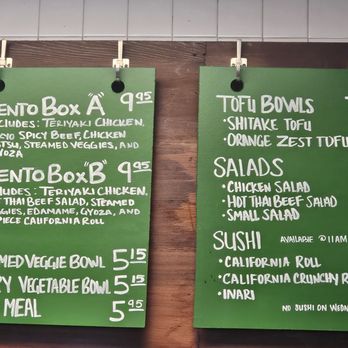 ENTO BOX "A" 9.95
CLUDES: TERIYAKI CHICKEN,
KYO SPICY BEEF, CHICKEN
TSU, STEAMED VEGGIES, AND
YOZA
ENTO BOX "B" 9.95
LUDES: TERIYAKI CHICKEN,
THAI BEEF SALAD, STEAMED
GGIES, EDAMAME, GYOZA, AND
PIECE CALIFORNIA ROLL
MED VEGGIE BOWL 5.15
CY VEGETABLE BOWL 5.15
MEAL 5.95
TOFU BOWLS
• SHITAKE TOFU
• ORANGE ZEST TOFU
SALADS
• CHICKEN SALAD
• HOT THAI BEEF SALAD
• SMALL SALAD
SUSHI AVAILABLE @ 11AM
• CALIFORNIA ROLL
• CALIFORNIA CRUNCHY R
• INARI
NO SUSHI ON WEDN